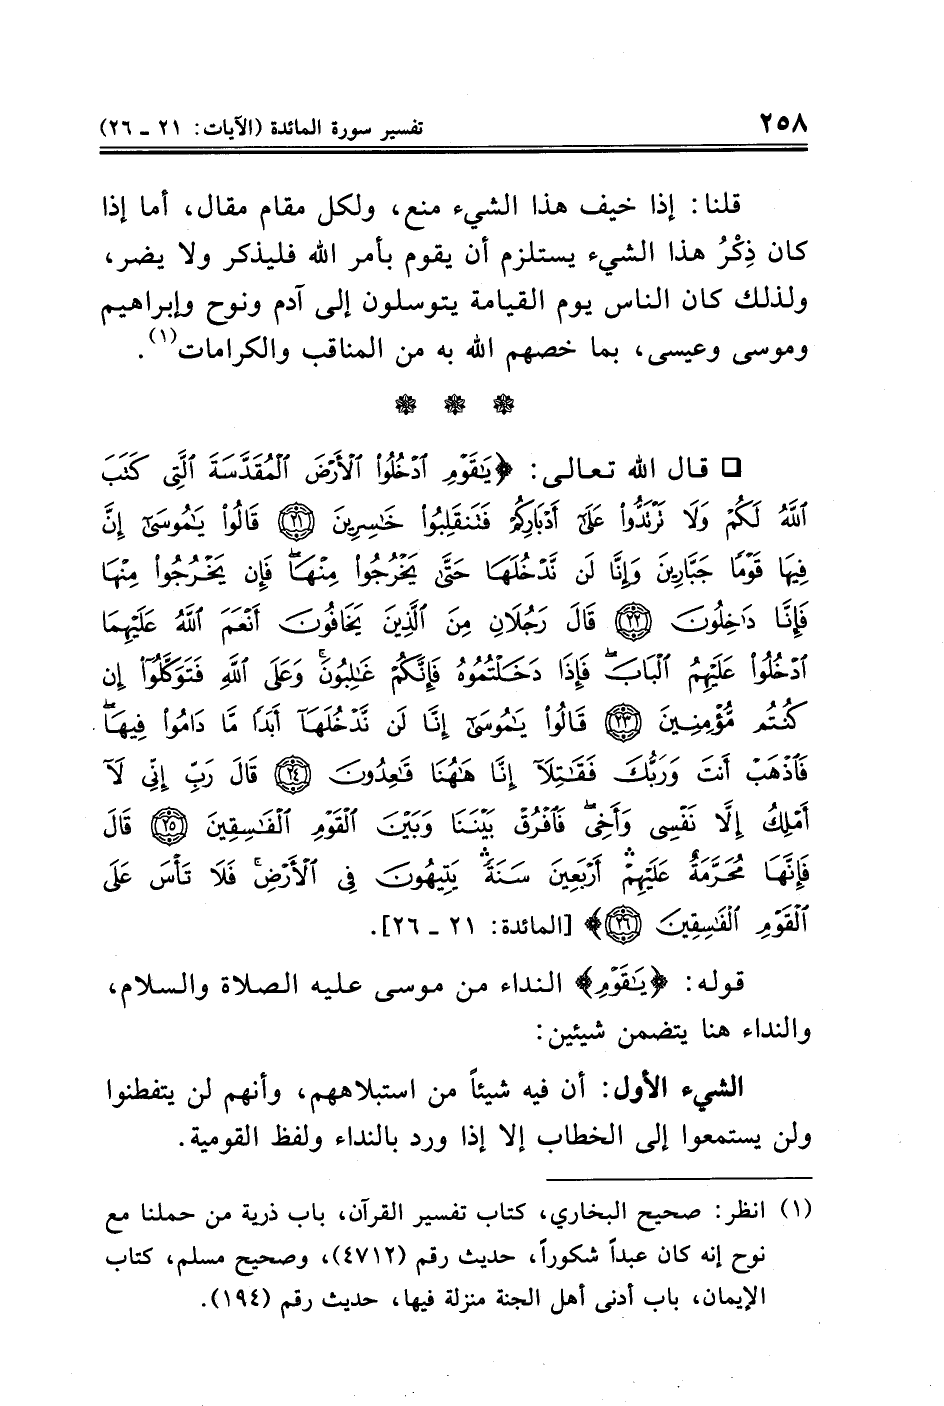 ٢٥٨
تفسير سورة المائدة (الآيات: ٢١ ـ ٢٦)
قلنا: إذا خيف هذا الشيء منع، ولكل مقام مقال، أما إذا
كان ذِكْرُ هذا الشيء يستلزم أن يقوم بأمر الله فليذكر ولا يضر،
ولذلك كان الناس يوم القيامة يتوسلون إلى آدم ونوح وإبراهيم
وموسى وعيسى، بما خصهم الله به من المناقب والكرامات(١).
❁ ❁ ❁
❑ قال الله تعالى: ﴿يَٰقَوْمِ ٱدْخُلُوا۟ ٱلْأَرْضَ ٱلْمُقَدَّسَةَ ٱلَّتِى كَتَبَ
ٱللَّهُ لَكُمْ وَلَا تَرْتَدُّوا۟ عَلَىٰٓ أَدْبَارِكُمْ فَتَنقَلِبُوا۟ خَٰسِرِينَ ٢١ قَالُوا۟ يَٰمُوسَىٰٓ إِنَّ
فِيهَا قَوْمًا جَبَّارِينَ وَإِنَّا لَن نَّدْخُلَهَا حَتَّىٰ يَخْرُجُوا۟ مِنْهَا ۖ فَإِن يَخْرُجُوا۟ مِنْهَا
فَإِنَّا دَٰخِلُونَ ٢٢ قَالَ رَجُلَانِ مِنَ ٱلَّذِينَ يَخَافُونَ أَنْعَمَ ٱللَّهُ عَلَيْهِمَا
ٱدْخُلُوا۟ عَلَيْهِمُ ٱلْبَابَ ۖ فَإِذَا دَخَلْتُمُوهُ فَإِنَّكُمْ غَٰلِبُونَ ۚ وَعَلَى ٱللَّهِ فَتَوَكَّلُوٓا۟ إِن
كُنتُم مُّؤْمِنِينَ ٢٣ قَالُوا۟ يَٰمُوسَىٰٓ إِنَّا لَن نَّدْخُلَهَآ أَبَدًا مَّا دَامُوا۟ فِيهَا ۖ
فَٱذْهَبْ أَنتَ وَرَبُّكَ فَقَٰتِلَآ إِنَّا هَٰهُنَا قَٰعِدُونَ ٢٤ قَالَ رَبِّ إِنِّى لَآ
أَمْلِكُ إِلَّا نَفْسِى وَأَخِى ۖ فَٱفْرُقْ بَيْنَنَا وَبَيْنَ ٱلْقَوْمِ ٱلْفَٰسِقِينَ ٢٥ قَالَ
فَإِنَّهَا مُحَرَّمَةٌ عَلَيْهِمْ ۛ أَرْبَعِينَ سَنَةً ۛ يَتِيهُونَ فِى ٱلْأَرْضِ ۚ فَلَا تَأْسَ عَلَى
ٱلْقَوْمِ ٱلْفَٰسِقِينَ ٢٦﴾ [المائدة: ٢١ ـ ٢٦].
قوله: ﴿يَٰقَوْمِ﴾ النداء من موسى عليه الصلاة والسلام،
والنداء هنا يتضمن شيئين:
الشيء الأول: أن فيه شيئاً من استبلاههم، وأنهم لن يتفطنوا
ولن يستمعوا إلى الخطاب إلا إذا ورد بالنداء ولفظ القومية.
(١) انظر: صحيح البخاري، كتاب تفسير القرآن، باب ذرية من حملنا مع
نوح إنه كان عبداً شكوراً، حديث رقم (٤٧١٢)، وصحيح مسلم، كتاب
الإيمان، باب أدنى أهل الجنة منزلة فيها، حديث رقم (١٩٤).